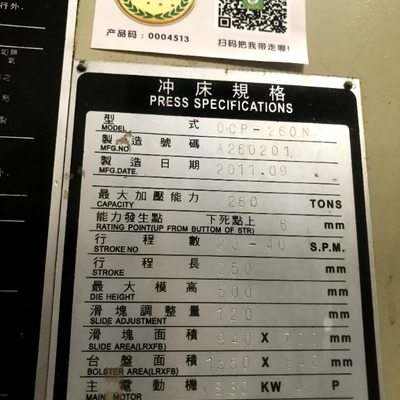 行外,
产品码：0004513
扫码把我带走啊!
冲床規格
PRESS SPECIFICATIONS
型式 OCP-260N
MODEL
製造號碼 A260201
MFG.NO
製造日期 2011.09
MFG.DATE.
最大加壓能力 260 TONS
CAPACITY
能力發生點 下死點上 6 mm
RATING POINT(UP FROM BUTTOM OF STR)
行程數 -40 S.P.M.
STROKE NO
行程長 250 mm
STROKE
最大模高 500 mm
DIE HEIGHT
滑塊調整量 120 mm
SLIDE ADJUSTMENT
滑塊面積 840 X mm
SLIDE AREA(LRXFB)
台盤面積 X mm
BOLSTER AREA(LRXFB)
主電動機 KW P
MAIN MOTOR